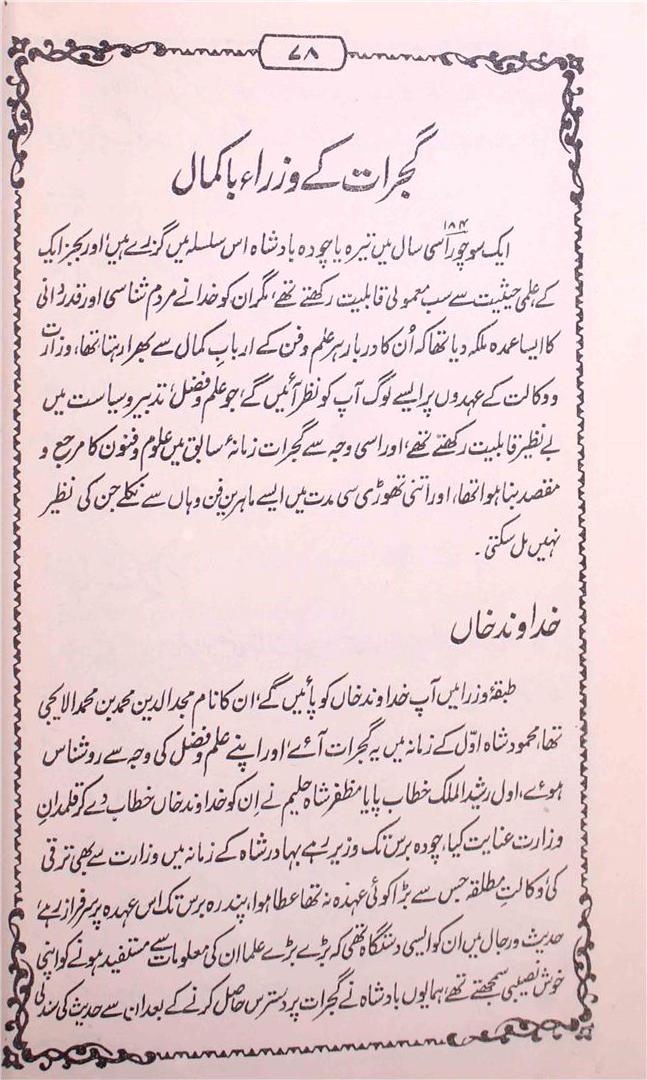 ۷۸
گجرات کے وزراء باکمال
۱۸۴
ایک سو چوراسی سال میں تیرہ یا چودہ بادشاہ اس سلسلہ میں گزرے ہیں، اور بجز ایک
کے علمی حیثیت سے سب معمولی قابلیت رکھتے تھے، مگر ان کو خدا نے مردم شناسی اور قدردانی
کا ایسا عمدہ ملکہ دیا تھا کہ اُن کا دربار ہر علم و فن کے اربابِ کمال سے بھرا رہتا تھا، وزارت
و وکالت کے عہدوں پر ایسے لوگ آپ کو نظر آئیں گے، جو علم و فضل، تدبیر و سیاست میں
بے نظیر قابلیت رکھتے تھے، اور اسی وجہ سے گجرات زمانۂ سابق میں علوم و فنون کا مرجع و
مقصد بنا ہوا تھا، اور اتنی تھوڑی سی مدت میں ایسے ماہرینِ فن وہاں سے نکلے جن کی نظیر
نہیں مل سکتی۔
خداوند خاں
طبقۂ وزرا میں آپ خداوند خاں کو پائیں گے، ان کا نام مجدالدین محمد بن محمد الایجی
تھا، محمود شاہ اوّل کے زمانہ میں یہ گجرات آئے، اور اپنے علم و فضل کی وجہ سے روشناس
ہوئے، اول رشید الملک خطاب پایا مظفر شاہ حلیم نے اِن کو خداوند خاں خطاب دے کر قلمدانِ
وزارت عنایت کیا، چودہ برس تک وزیر رہے بہادر شاہ کے زمانہ میں وزارت سے بھی ترقی
کی، وکالتِ مطلقہ جس سے بڑا کوئی عہدہ نہ تھا عطا ہوا، پندرہ برس تک اس عہدہ پر سرفراز رہے،
حدیث و رجال میں ان کو ایسی دستگاہ تھی کہ بڑے بڑے علما ان کی معلومات سے مستفید ہونے کو اپنی
خوش نصیبی سمجھتے تھے، ہمایوں بادشاہ نے گجرات پر دسترس حاصل کرنے کے بعد ان سے حدیث کی سند لی